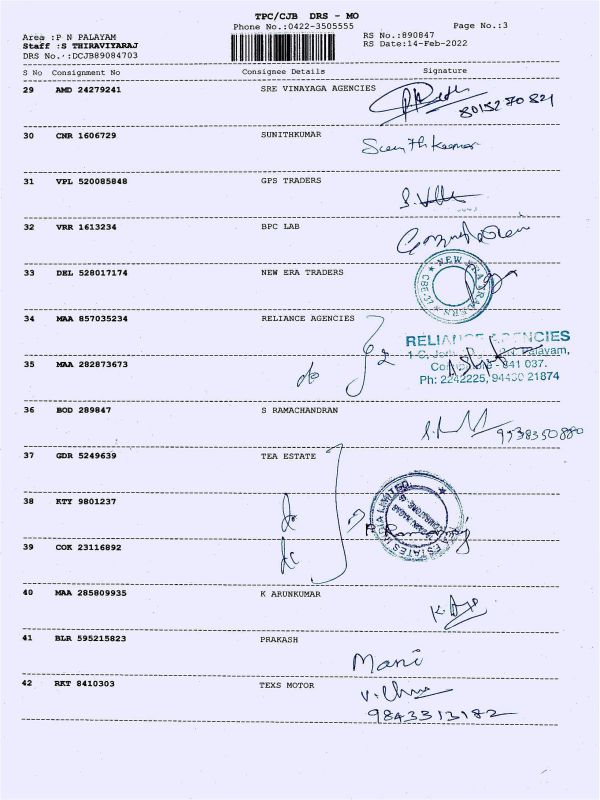 TPC/CJB DRS - MO
Phone No.:0422-3505555 Page No.:3
Area :P N PALAYAM RS No.:890847
Staff :S THIRAVIYARAJ RS Date:14-Feb-2022
DRS No.:DCJB89084703
S No Consignment No Consignee Details Signature
29 AMD 24279241 SRE VINAYAGA AGENCIES
8015270821
30 CNR 1606729 SUNITHKUMAR
Sunithkumar
31 VPL 520085848 GPS TRADERS
32 VRR 1613234 BPC LAB
33 DEL 528017174 NEW ERA TRADERS
NEW ERA TRADERS
34 MAA 857035234 RELIANCE AGENCIES
RELIANCE AGENCIES
Palayam,
Coimbatore - 641 037.
Ph: 2242225, 94430 21874
35 MAA 282873673
do
36 BOD 289847 S RAMACHANDRAN
9538350880
37 GDR 5249639 TEA ESTATE
TEA ESTATES INDIA LIMITED
38 KTY 9801237
39 COK 23116892
40 MAA 285809935 K ARUNKUMAR
41 BLR 595215823 PRAKASH
Mani
42 RKT 8410303 TEXS MOTOR
9843313182